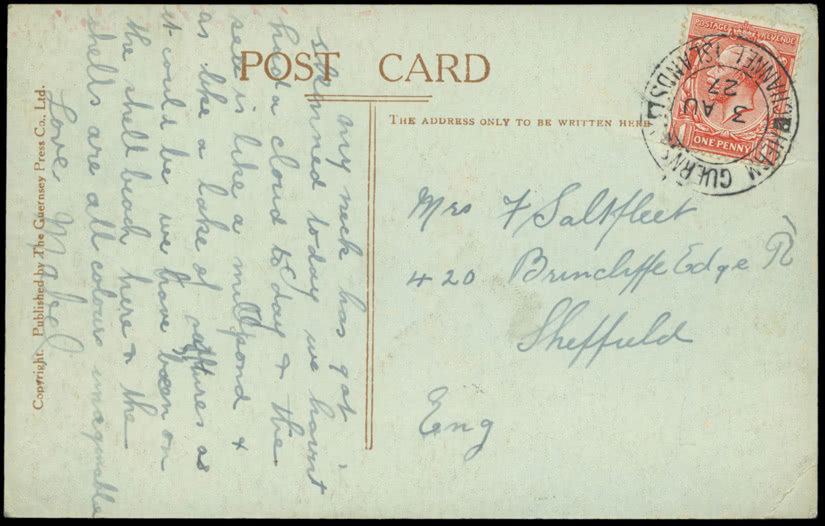 POST CARD
THE ADDRESS ONLY TO BE WRITTEN HERE
Copyright. Published by The Guernsey Press Co., Ltd.
my neck has got
skinned today we havent
had a cloud to day & the
sea is like a millpond &
as like a lake of as
it could be we have been on
the shell beach here & the
shells are all colours
Love, Mabel
Mrs F Saltfleet
420 Brincliffe Edge Rd
Sheffield
Eng
POSTAGE REVENUE
ONE PENNY
HERM GUERNSEY
CHANNEL ISLANDS
3 AU
27